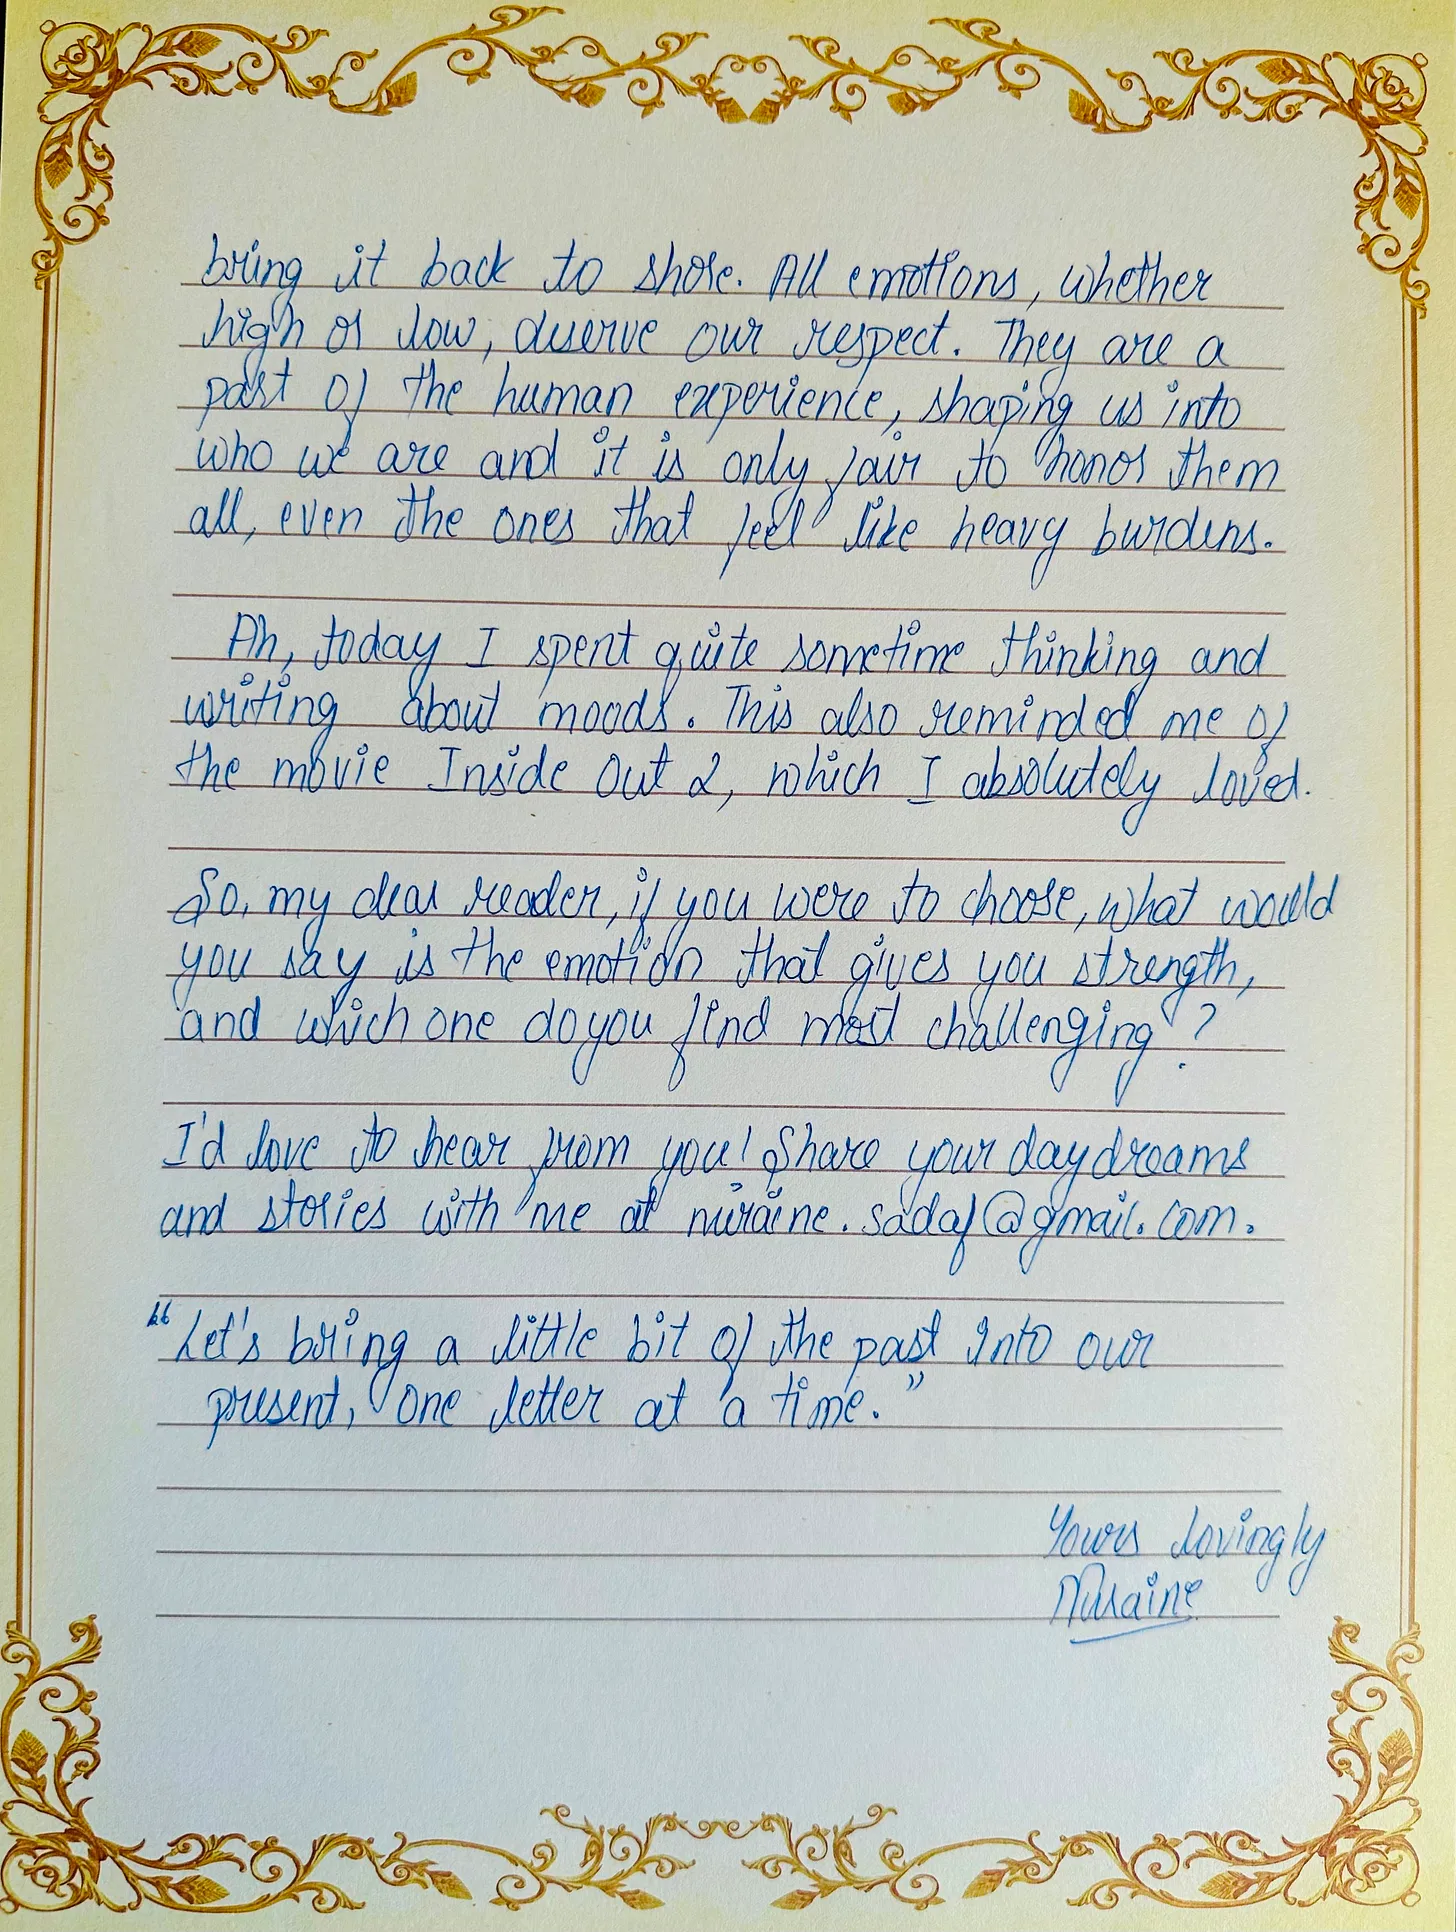 bring it back to shore. All emotions, whether
high or low, deserve our respect. They are a
part of the human experience, shaping us into
who we are and it is only fair to honor them
all, even the ones that feel like heavy burdens.
Ah, today I spent quite sometime thinking and
writing about moods. This also reminded me of
the movie Inside Out 2, which I absolutely loved.
So, my dear reader, if you were to choose, what would
you say is the emotion that gives you strength,
and which one do you find most challenging?
I'd love to hear from you! Share your daydreams
and stories with me at nuraine.sadaf@gmail.com.
"Let's bring a little bit of the past into our
present, one letter at a time."
Yours lovingly
Nuraine